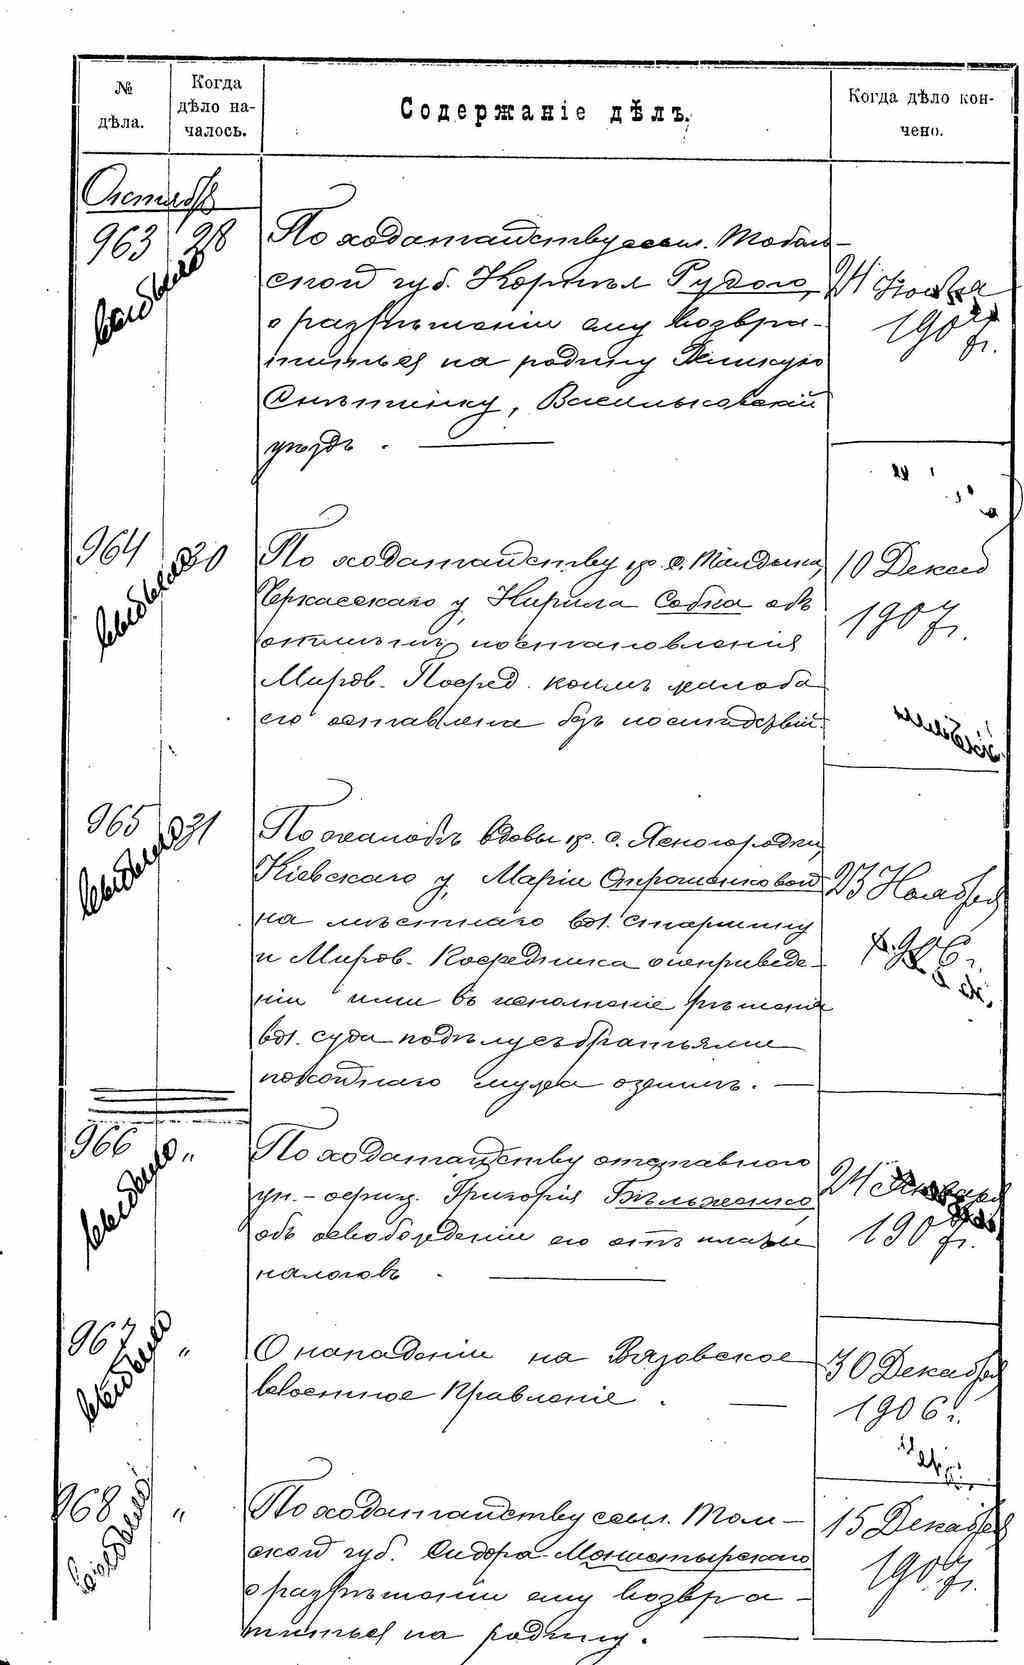 №
дѣла.
Когда
дѣло на-
чалось.
Содержаніе дѣлъ.
Когда дѣло кон-
чено.
Октябрь
963 28
выбыло
По ходатайству ссыл. Тоболь-
ской губ. Корнѣя Рудого,
о разрѣшеніи ему возвра-
титься на родину Великую
Снѣтинку, Васильковскій
уѣздъ. —
24 Ноября
1907 г.
964 30
выбыло
По ходатайству кр. с. Талдыки,
Черкасскаго у, Кирила Собка объ
отмѣнѣ постановленія
Миров. Посред. коимъ жалоба
его оставлена безъ послѣдствій.
10 Декаб
1907 г.
965 31
выбыло
По жалобѣ вдовы кр. с. Ясногородки,
Кіевскаго у, Маріи
на мѣстнаго вол. старшину
и Миров. Посредника о неприведе-
ніи ими въ исполненіе рѣшенія
вол. суда
покойнаго мужа озимъ. —
23 Ноября
1906 г.
966 "
выбыло
По ходатайству отставного
ун.-офиц. Григорія Бѣльженко,
объ освобожденіи его отъ платы
налоговъ. —
24 Января
1907 г.
967 "
выбыло
О нападеніи на Вязовское
волостное Правленіе. —
30 Декабря
1906 г.
968 "
выбыло
По ходатайству ссыл. Том-
ской губ. Сидора Монастырскаго
о разрѣшеніи ему возвра-
титься на родину. —
15 Декабря
1907 г.